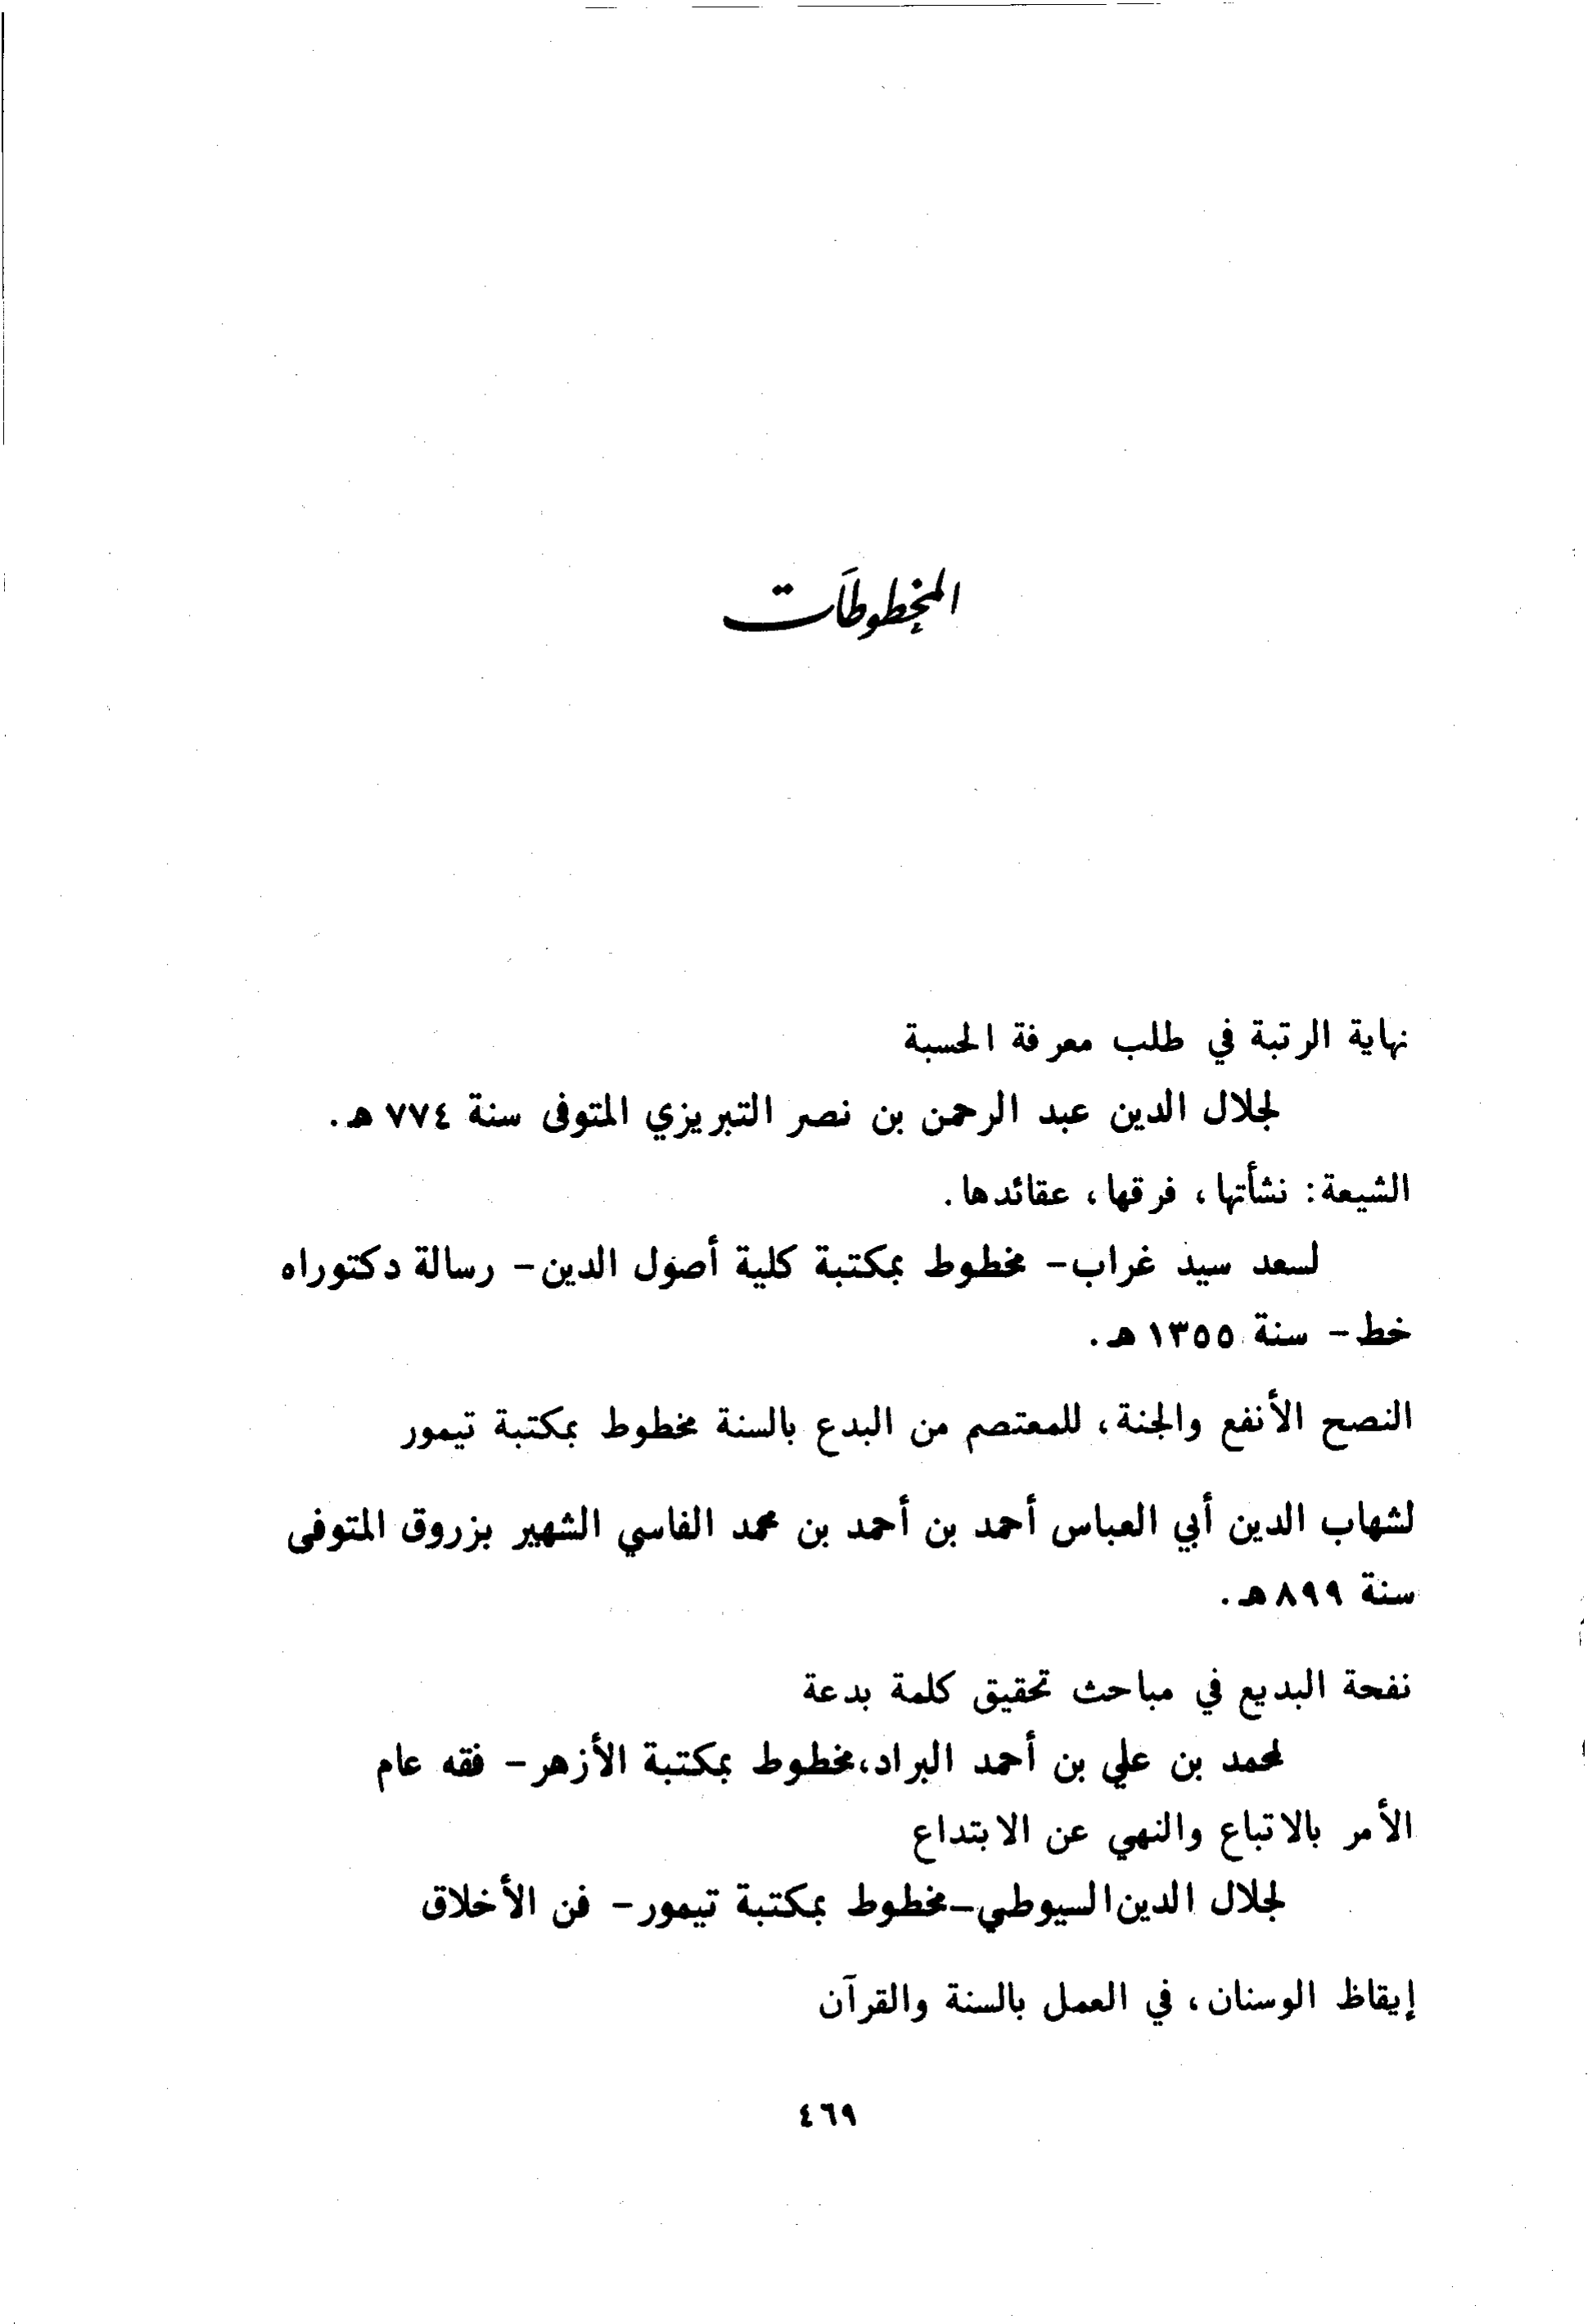 المخطوطات
نهاية الرتبة في طلب معرفة الحسبة
لجلال الدين عبد الرحمن بن نصر التبريزي المتوفى سنة ٧٧٤ هـ.
الشيعة: نشأتها، فرقها، عقائدها.
لسعد سيد غراب- مخطوط بمكتبة كلية أصول الدين- رسالة دكتوراه
خط- سنة ١٣٥٥ هـ.
النصح الأنفع والجنة، للمعتصم من البدع بالسنة مخطوط بمكتبة تيمور
لشهاب الدين أبي العباس أحمد بن أحمد بن محمد الفاسي الشهير بزروق المتوفى
سنة ٨٩٩هـ.
نفحة البديع في مباحث تحقيق كلمة بدعة
لمحمد بن علي بن أحمد البراد،مخطوط بمكتبة الأزهر- فقه عام
الأمر بالاتباع والنهي عن الابتداع
لجلال الدين السيوطي-مخطوط بمكتبة تيمور- فن الأخلاق
إيقاظ الوسنان، في العمل بالسنة والقرآن
٤٦٩